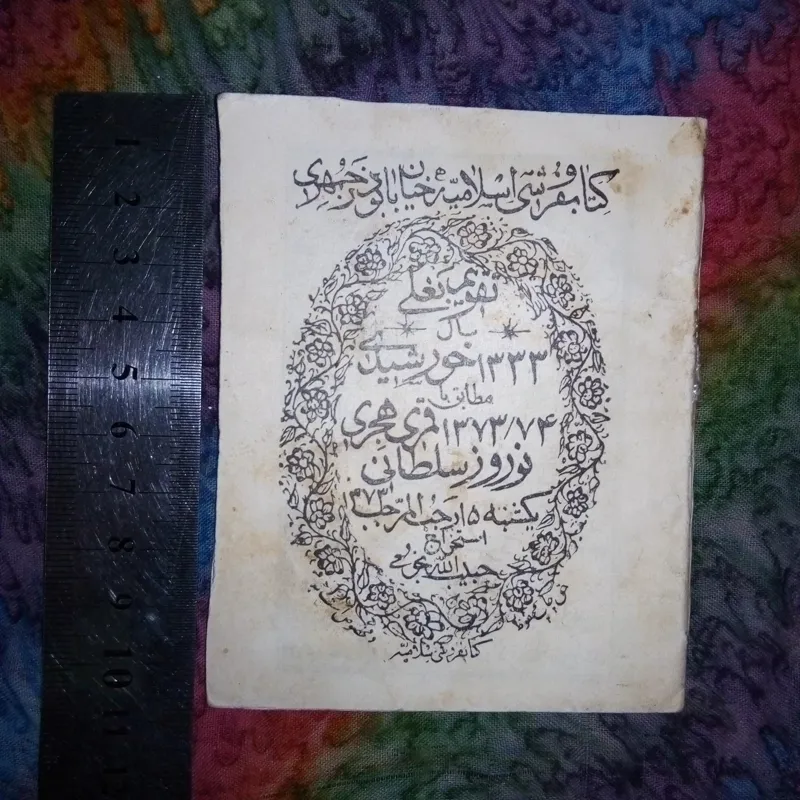 کتابفروشی اسلامیه خیابان بوذرجمهری
تقویم بغلی
پاک
۱۳۳۳ خورشیدی
مطابق با
۱۳۷۳/۷۴ قمری هجری
نوروز سلطانی
یکشنبه ۱۵ رجب المرجب ۱۳۷۳
استخراج
حبیب الله نجومی
کتابفروشی اسلامیه
1
2
3
4
5
6
7
8
9
10
11
12